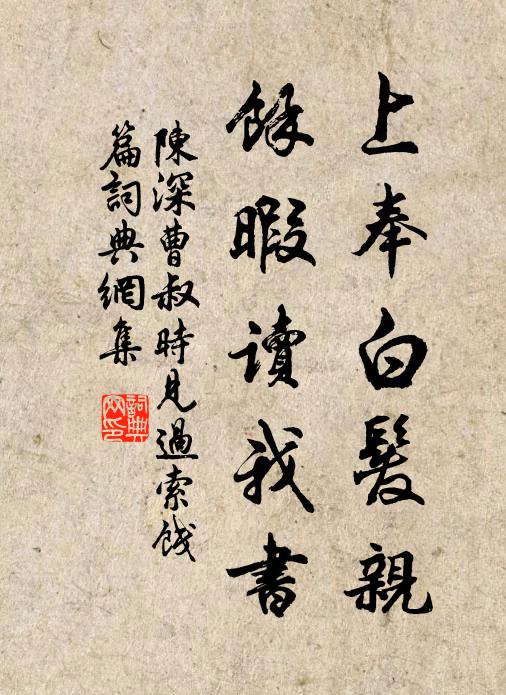 上奉白髮親
餘暇讀我書
陳深曹叔時見過索餞
篇詞典網集
詞典網印